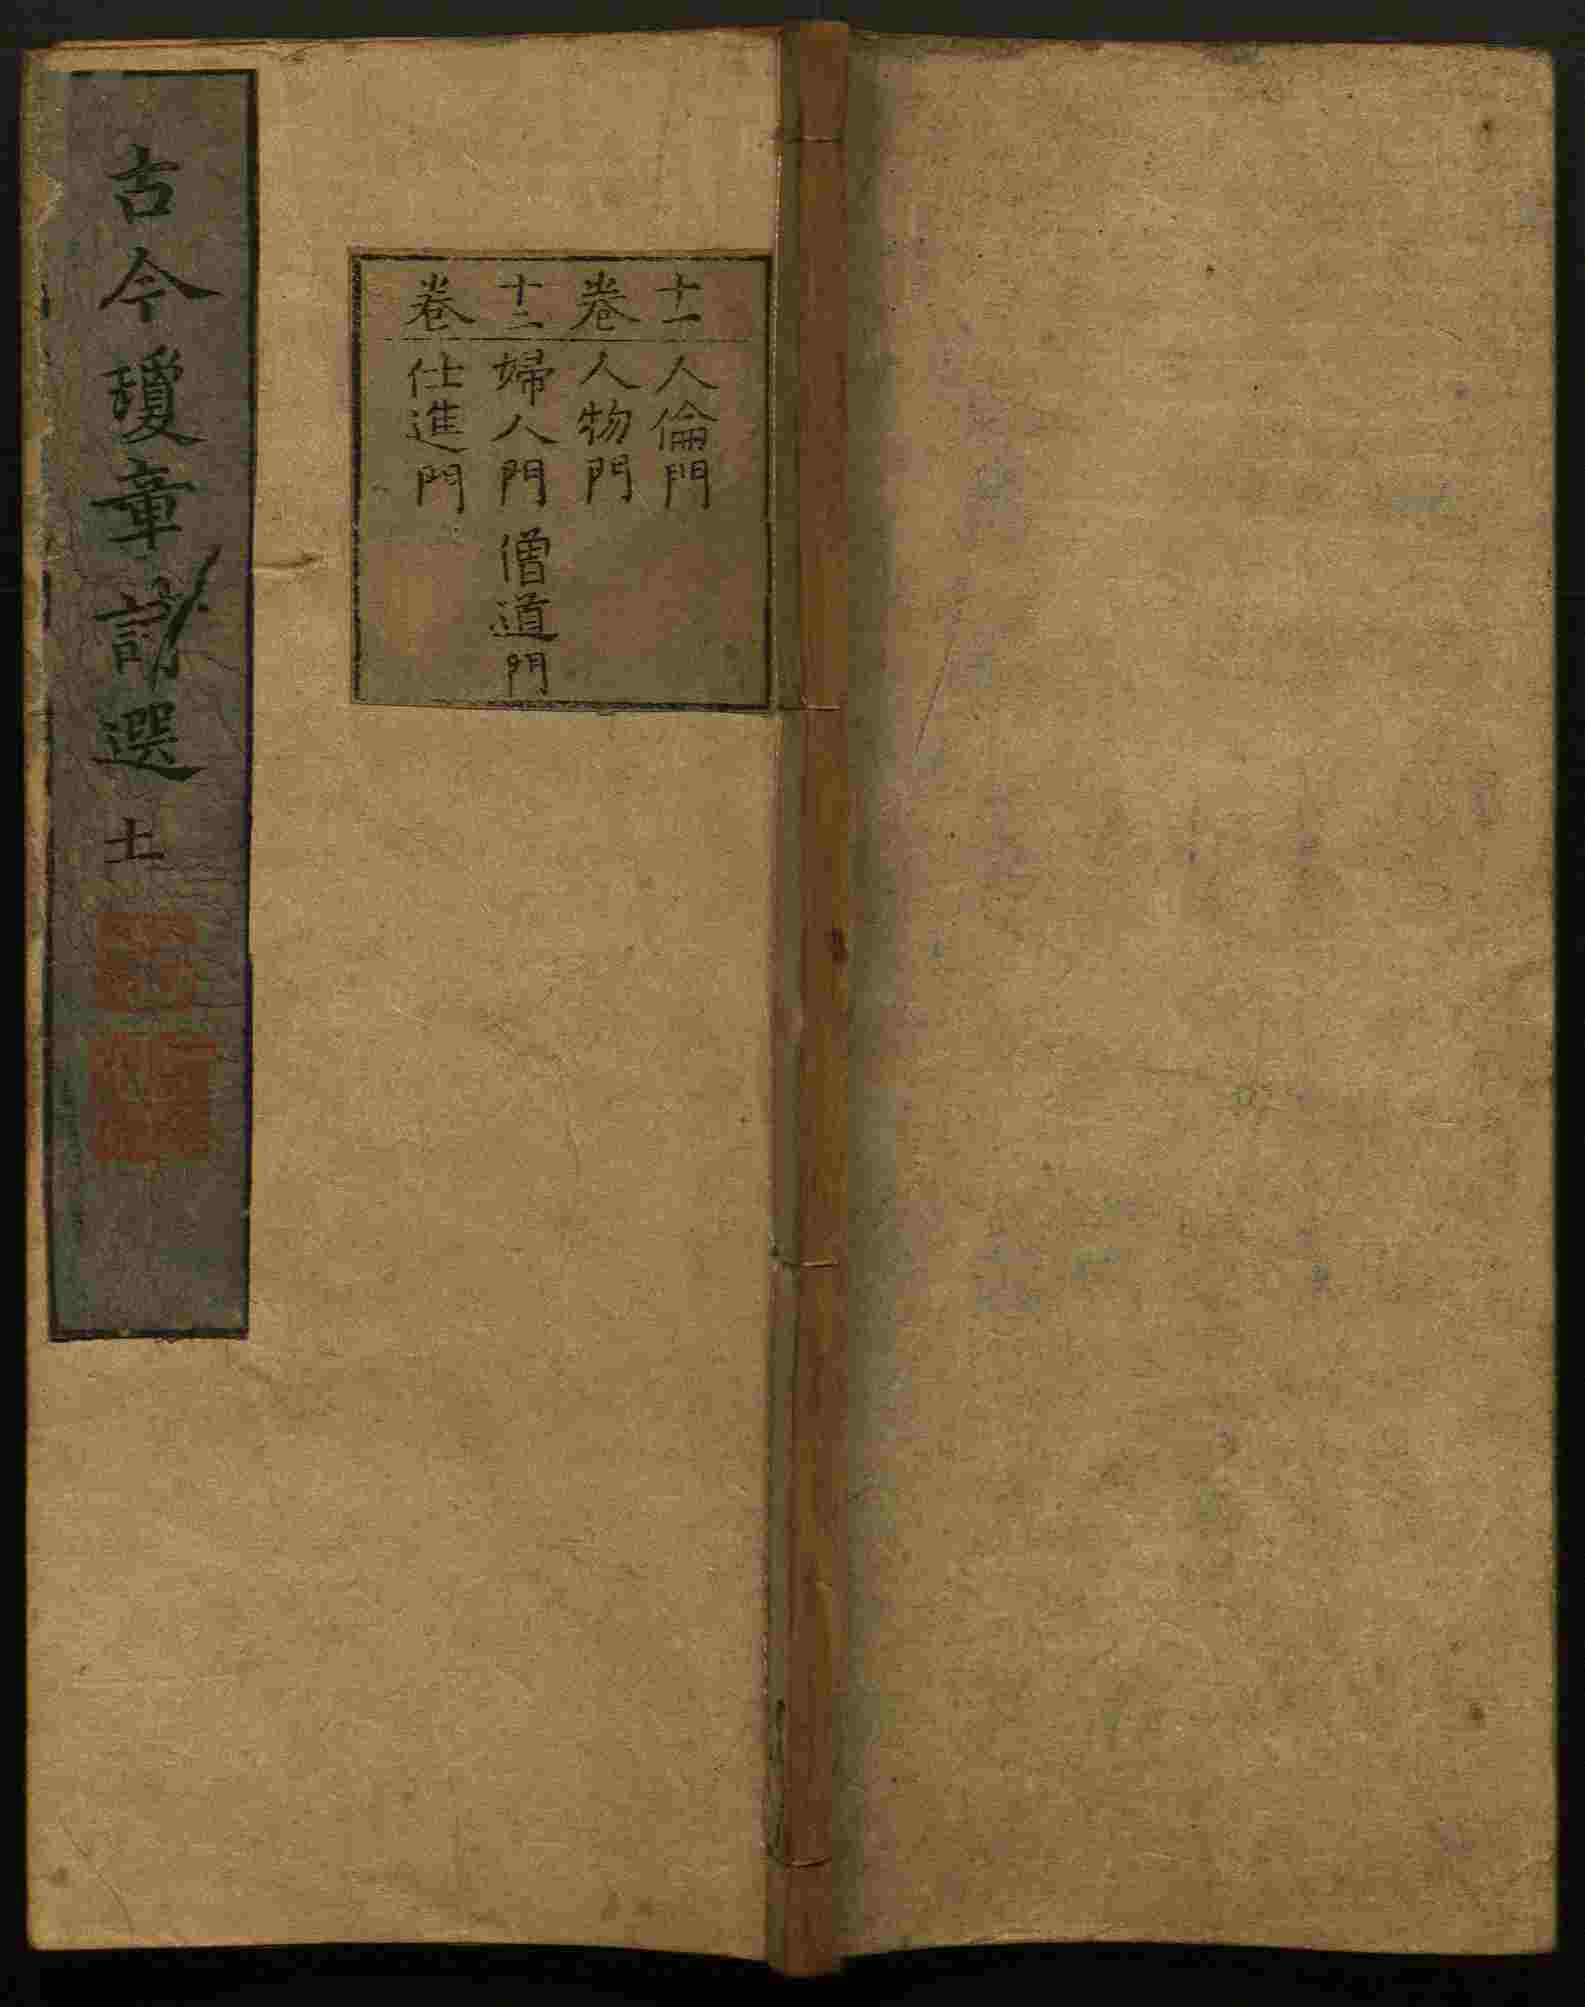 十一 人倫門
卷 人物門
十二 婦人門 僧道門
卷 仕進門
古今瓊章選 十一